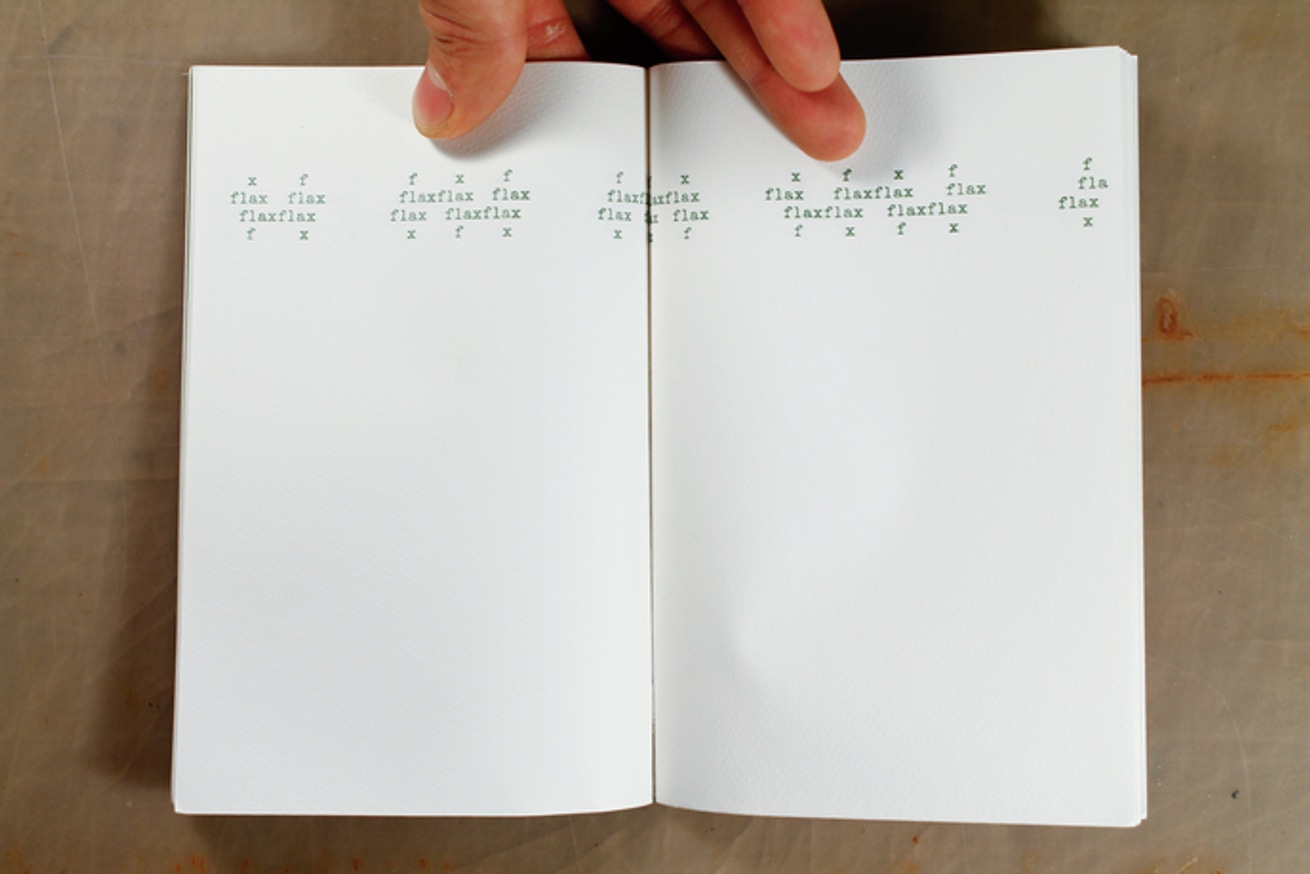 x f f x f f x x f x f f
flax flax flaxflax flax flaxflaxflax flax flaxflax flax fla
flaxflax flax flaxflax flax flax flaxflax flaxflax flax
f x x f x x f f x f x x